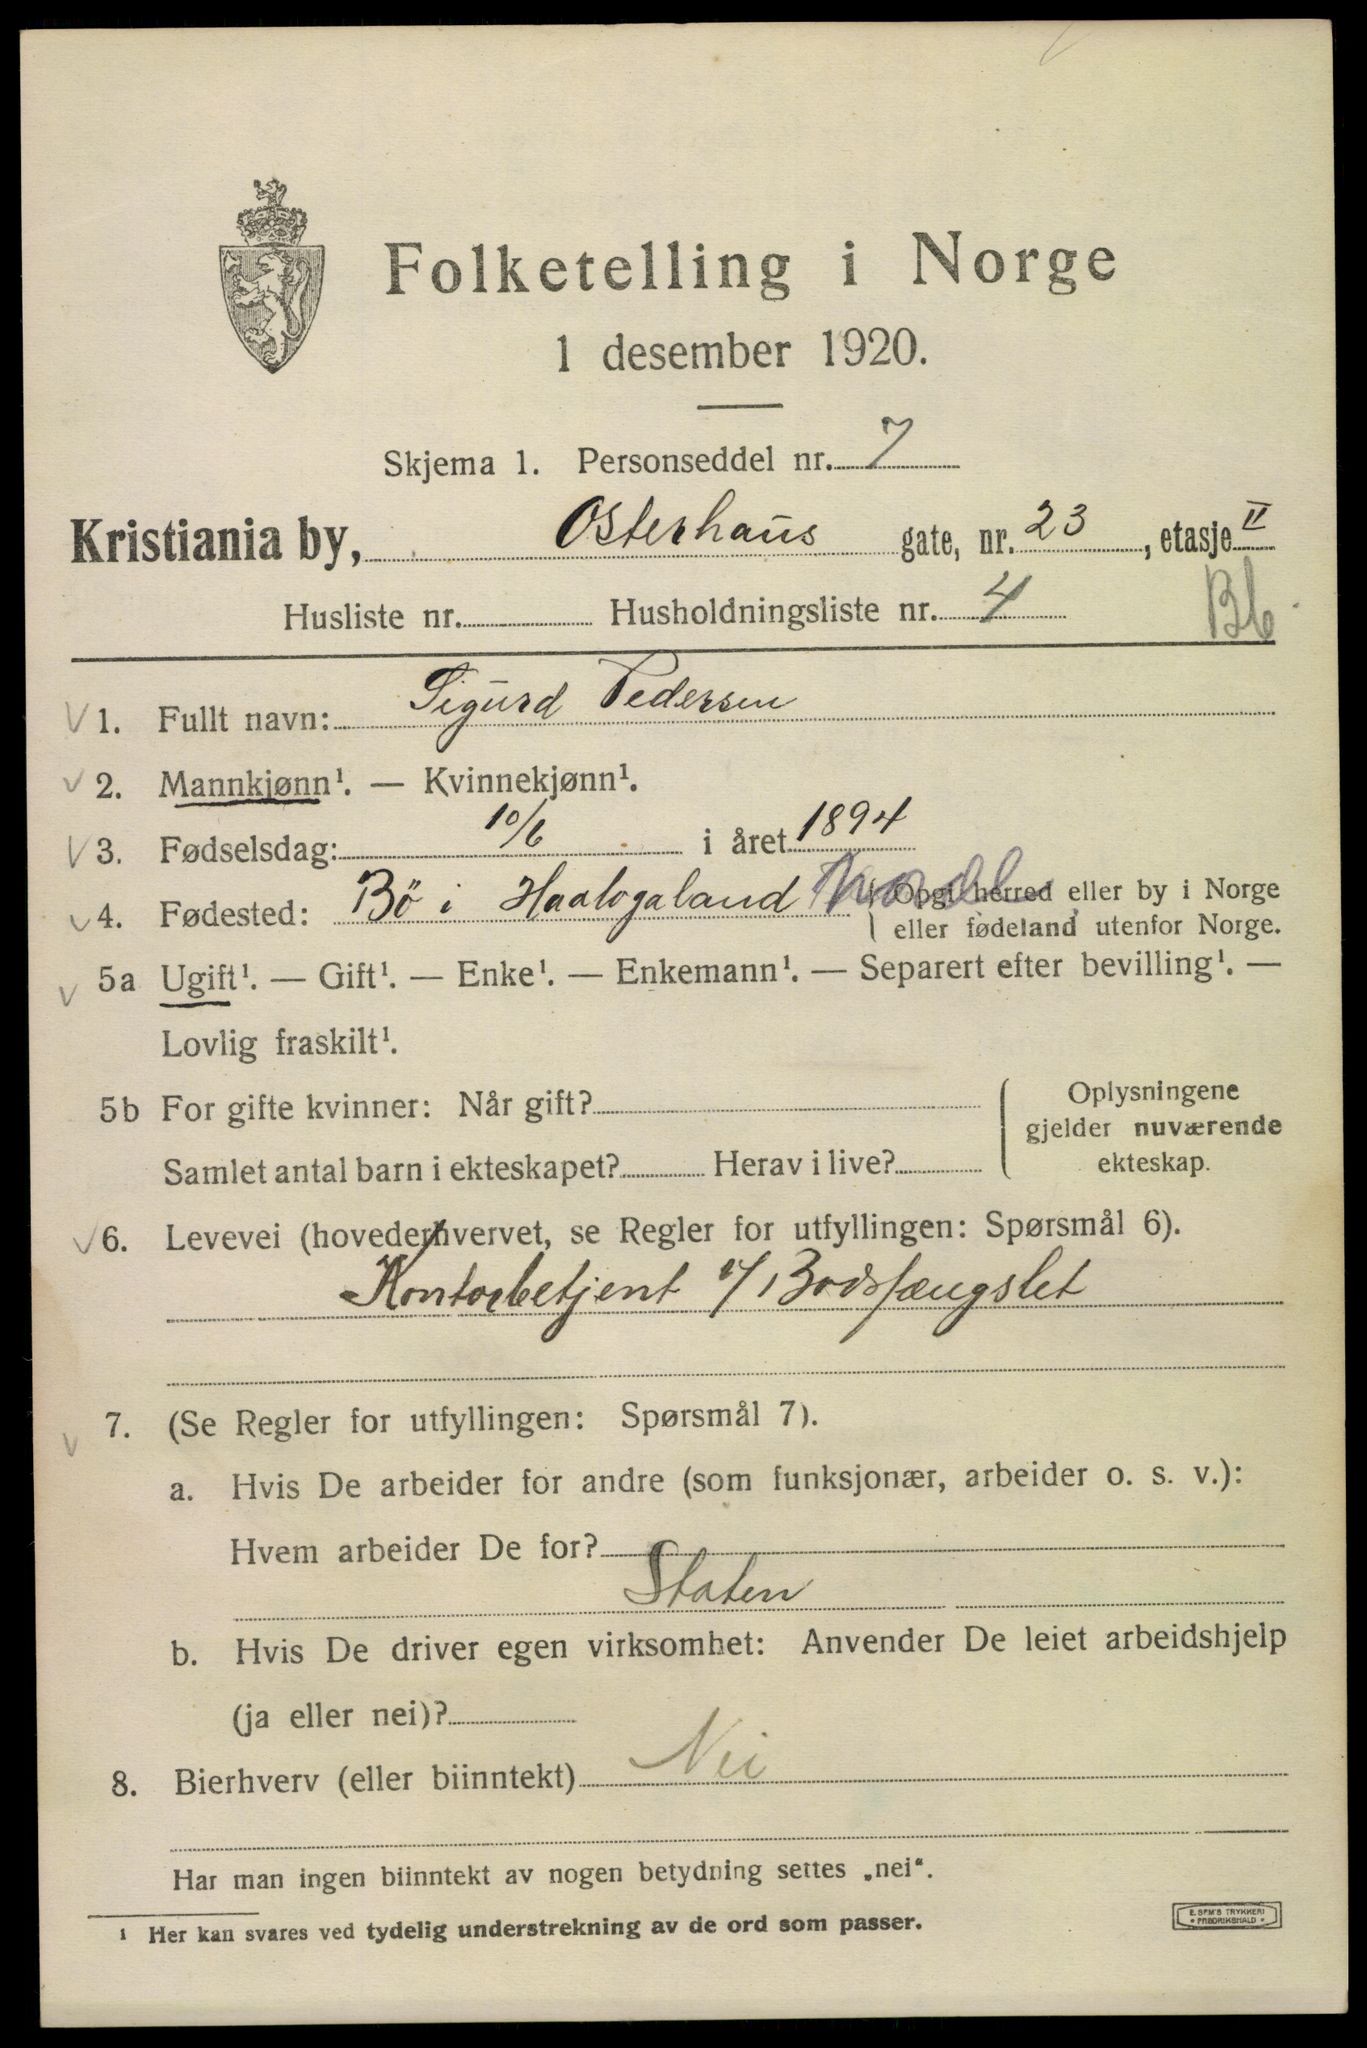 Folketelling i Norge
1 desember 1920.
Skjema 1. Personseddel nr. 7
Kristiania by, Osterhaus gate, nr. 23, etasje II
Husliste nr. Husholdningsliste nr. 4
Bb
V 1. Fullt navn: Sigurd Pedersen
V 2. Mannkjønn¹. — Kvinnekjønn¹.
V 3. Fødselsdag: 10/6 i året 1894
V 4. Fødested: Bö i Haalogaland Nordl. Opgi herred eller by i Norge
eller fødeland utenfor Norge.
V 5a Ugift¹. — Gift¹. — Enke¹. — Enkemann¹. — Separert efter bevilling¹. —
Lovlig fraskilt¹.
5b For gifte kvinner: Når gift? Oplysningene
gjelder nuværende
Samlet antal barn i ekteskapet? Herav i live? ekteskap.
V 6. Levevei (hovederhvervet, se Regler for utfyllingen: Spørsmål 6).
Kontorbetjent v/ Bodsfængslet
V 7. (Se Regler for utfyllingen: Spørsmål 7).
a. Hvis De arbeider for andre (som funksjonær, arbeider o. s. v.):
Hvem arbeider De for?
Staten
b. Hvis De driver egen virksomhet: Anvender De leiet arbeidshjelp
(ja eller nei)?
8. Bierhverv (eller biinntekt) Nei
Har man ingen biinntekt av nogen betydning settes „nei“.
¹ Her kan svares ved tydelig understrekning av de ord som passer.
E. SEM'S TRYKKERI
• FREDRIKSHALD •